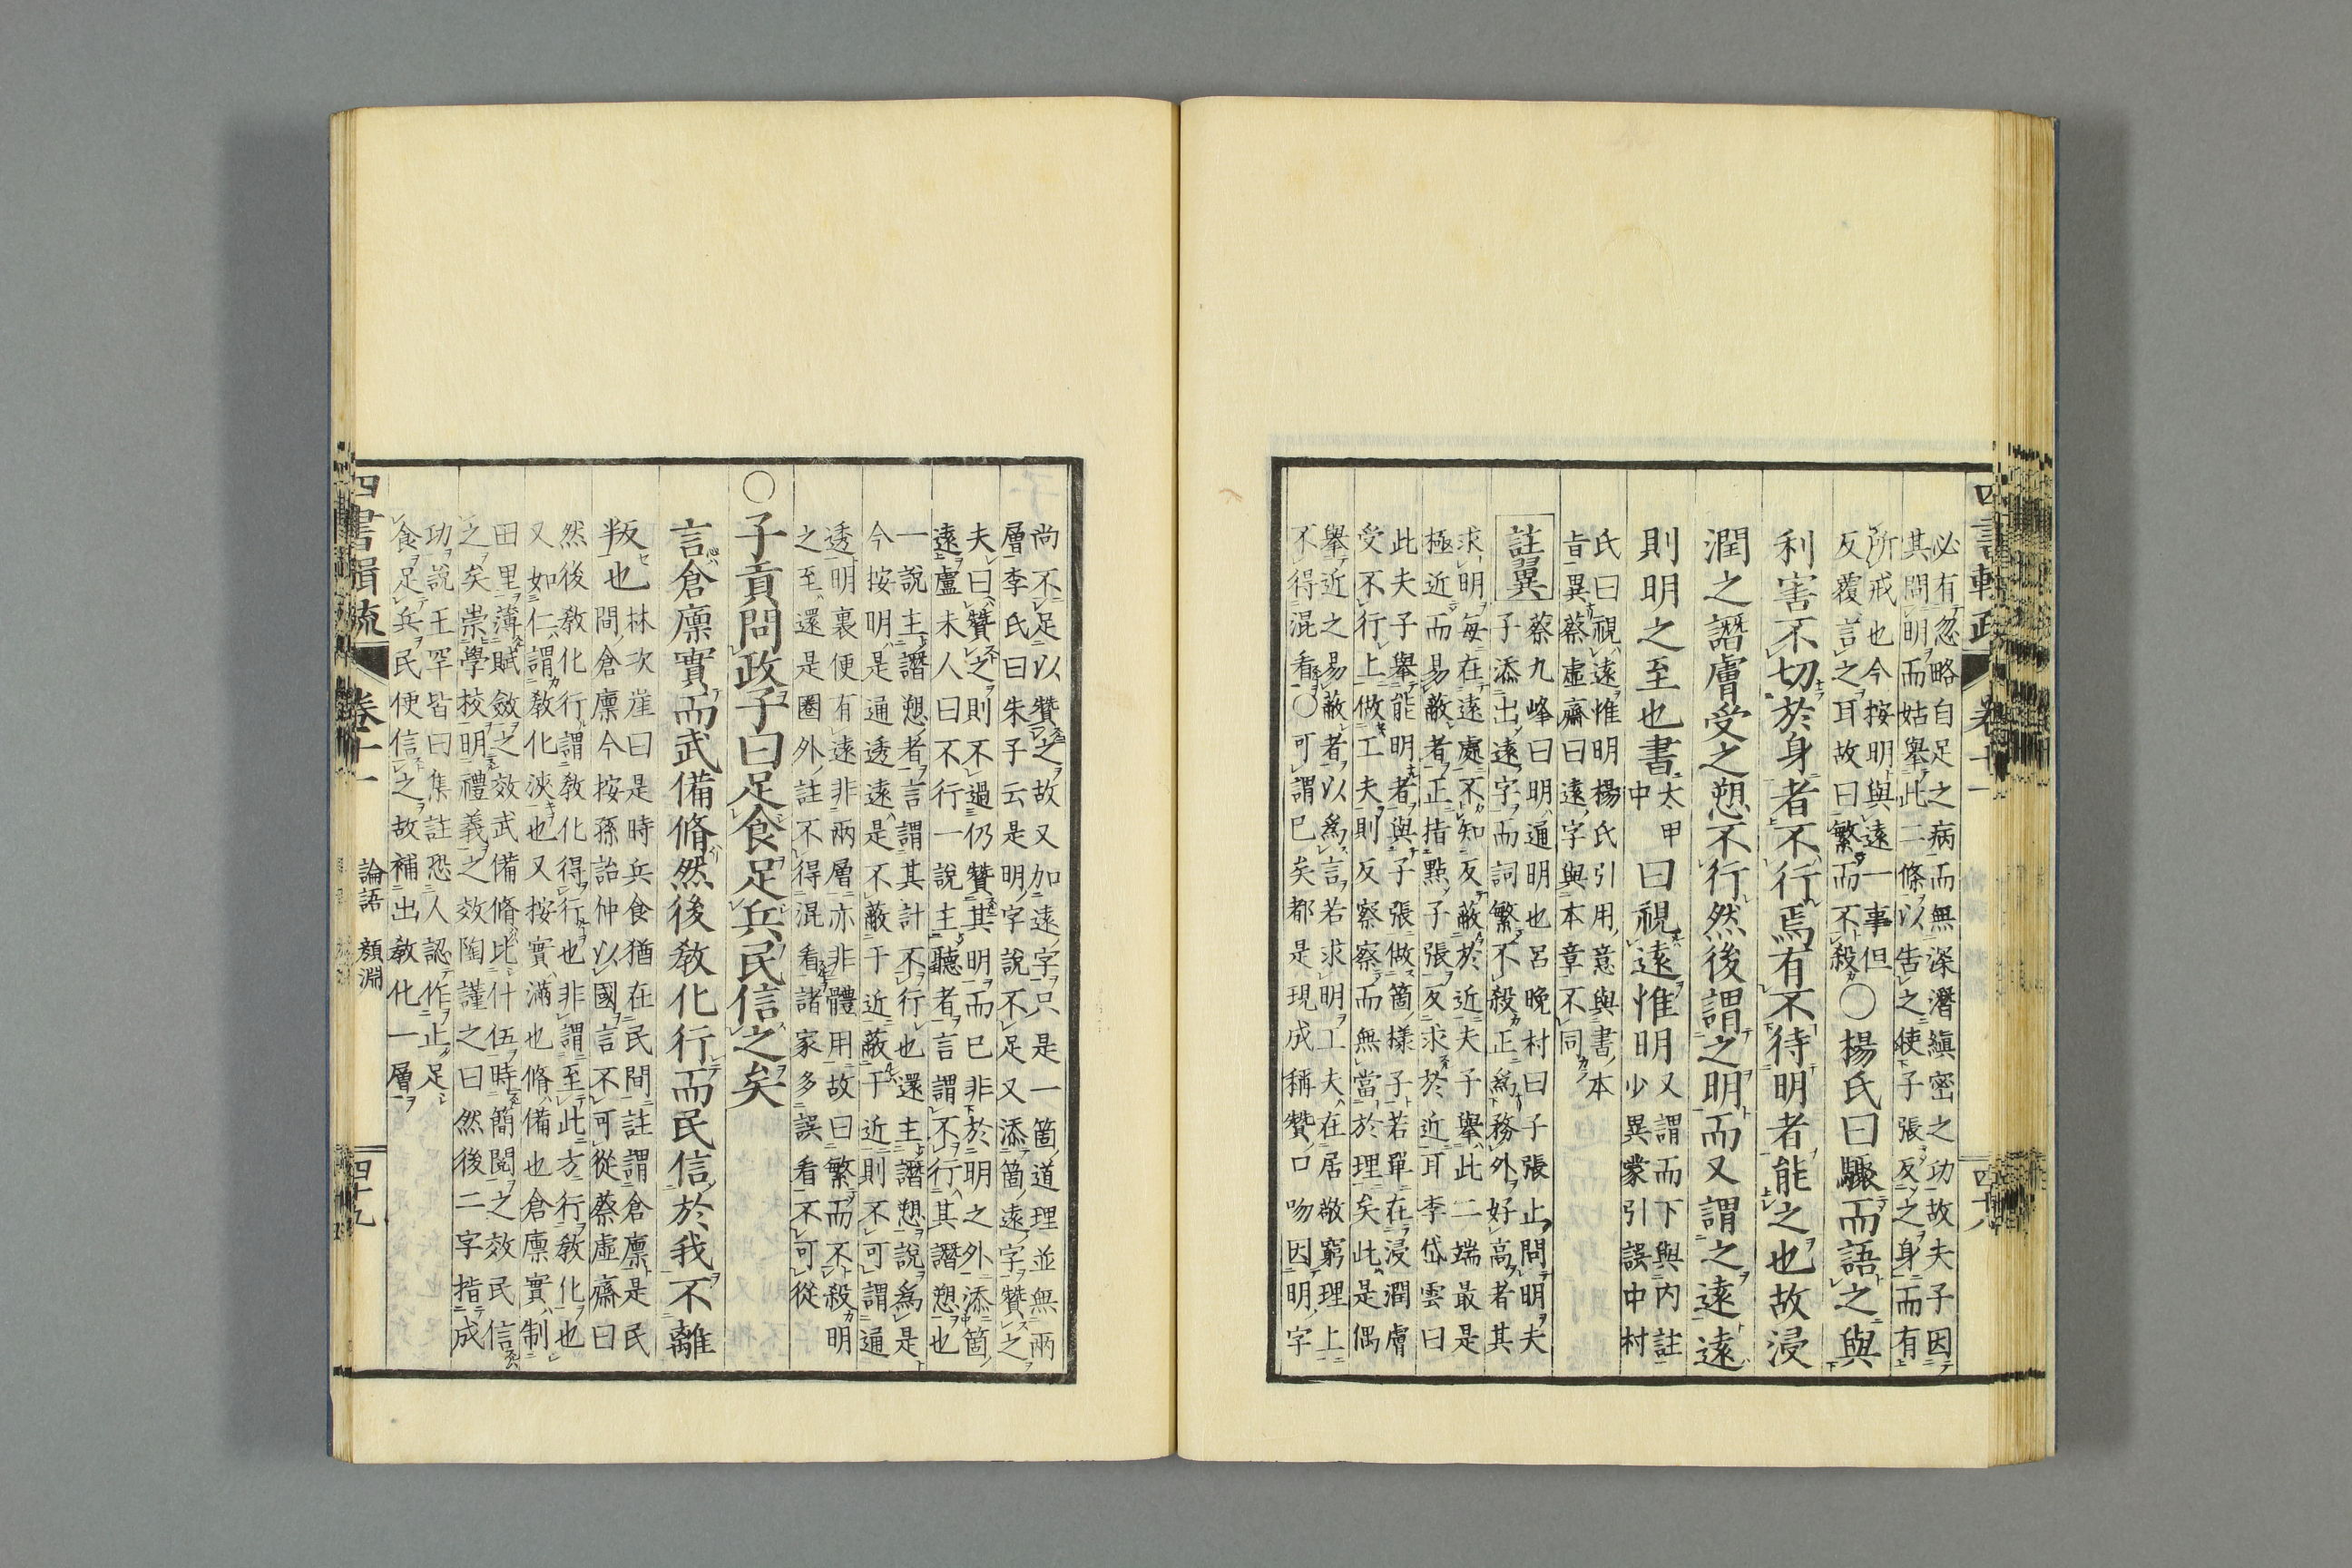 必有忽略自足之病而無深潛縝密之功故夫子因
其問明而姑舉此二條以告之使子張反之身而有
所戒也今按明與遠一事但
反覆言之耳故曰繁而不殺〇楊氏曰驟而語之與
利害不切於身者不行焉有不待明者能之也故浸
潤之譖膚受之愬不行然後謂之明而又謂之遠遠
則明之至也書太甲中曰視遠惟明又謂而下與内註
少異蒙引誤中村
氏曰視遠惟明楊氏引用意與書本
旨異蔡虛齋曰遠字與本章不同
註翼
蔡九峰曰明通明也呂晚村曰子張止問明夫
子添出遠字而詞繁不殺正為務外好高者其
求明每在遠處不知反蔽於近夫子舉此二端最是
極近而易蔽者正指點子張反求於近耳李岱雲曰
此夫子舉能明者與子張做箇樣子若單在浸潤膚
受不行上做工夫則反察察而無當於理矣此是偶
舉近之易蔽者以為言若求明工夫在居敬窮理上
不得混看〇可謂已矣都是現成稱贊口吻因明字
尚不足以贊之故又加遠字只是一箇道理並無兩
層李氏曰朱子云是明字說不足又添箇遠字贊之
夫曰贊之則不過仍贊其明而已非於明之外添箇
遠盧未人曰不行一說主聽者言謂不行其譖愬也
一說主譖愬者言謂其計不行也還主譖愬說為是
今按明是通透遠是不蔽于近蔽于近則不可謂通
透明裏便有遠非兩層亦非體用故曰繁而不殺明
之至還是圈外註不得混看諸家多誤看不可從
〇子貢問政子曰足食足兵民信之矣
言倉廩實而武備脩然後敎化行而民信於我不離
叛也林次崖曰是時兵食猶在民間註謂倉廩是民
間倉廩今按孫詒仲以國言不可從蔡虛齋曰
然後敎化行謂敎化得行也非謂至此方行敎化也
又如仁謂敎化浹也又按實滿也脩備也倉廩實制
田里薄賦斂之效武備脩比什伍時簡閱之效民信
之矣崇學校明禮義之效陶謹之曰然後二字指成
功說王罕皆曰集註恐人認作止足
食足兵民便信之故補出敎化一層
四書輯疏
卷十一
論語
顏淵
四十九